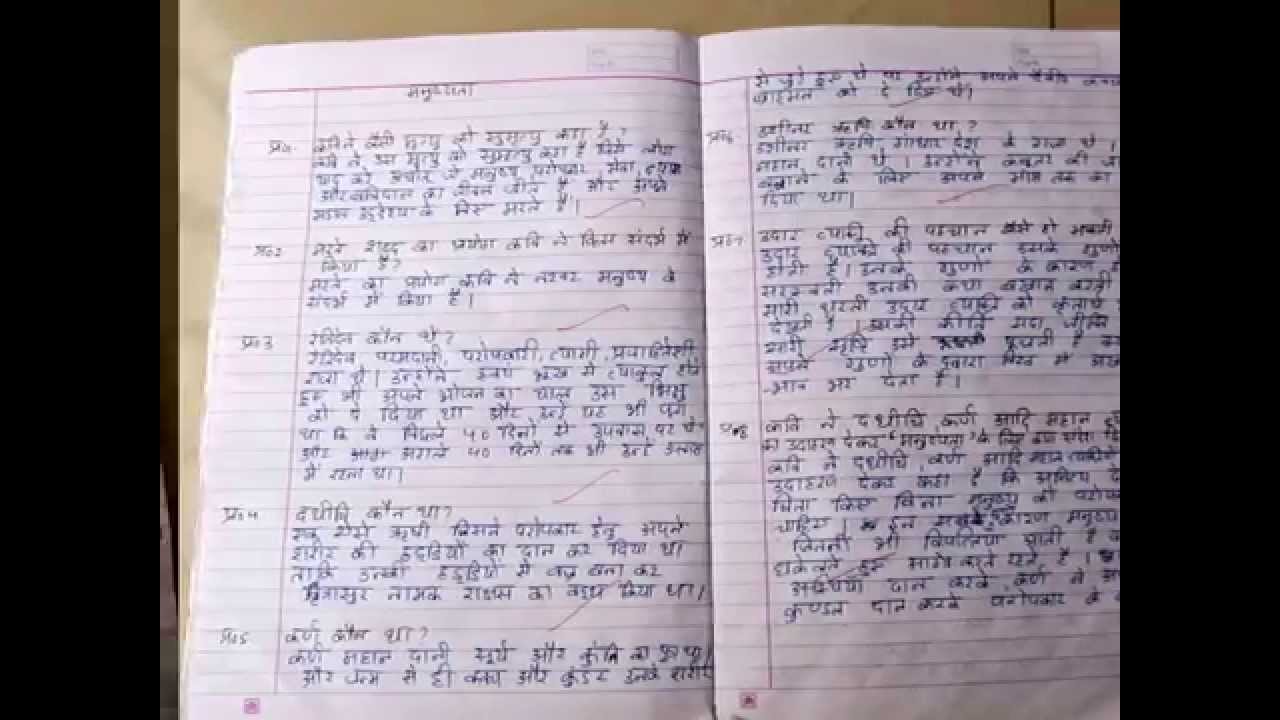 मनुष्यता
प्र॰1 कवि ने कैसी मृत्यु को सुमृत्यु कहा है?
कवि ने उस मृत्यु को सुमृत्यु कहा है
मनुष्य परोपकार सेवा, त्याग
और बलिदान का जीवन जीते है और अपने
उद्देश्य के लिए मरते है।
प्र॰2 मर्त्य शब्द का प्रयोग कवि ने किस संदर्भ में
किया है?
मर्त्य का प्रयोग कवि ने नश्वर मनुष्य के
संदर्भ में किया है।
प्र॰3 रंतिदेव कौन थे?
रंतिदेव परमदानी, परोपकारी, त्यागी,
राजा थे। उन्होंने स्वयं भूख से व्याकुल होते
हुए भी अपने भोजन का थाल उस भिक्षु
को दे दिया था और उन्हें यह भी पता
था कि वे पिछले 40 दिनों से उपवास पर थे
और अगले 40 दिनों तक भी उन्हें उपवास
में रहना था।
प्र॰4 दधीचि कौन था?
एक ऐसे ऋषी जिसने परोपकार हेतु अपने
शरीर की हड्डियों का दान कर दिया था
ताकि उनकी हड्डियों से वज्र बना कर
वृत्रासुर नामक राक्षस का वध किया था।
प्र॰5 कर्ण कौन था?
कर्ण महान दानी सूर्य और कुंति का पुत्र था।
और जन्म से ही कवच और कुंडल उनके शरीर
से जुड़े हुए थे पर उन्होंने अपने
ब्राहमन को दे दिए थे।
प्र॰6 उशीनर ऋषि कौन था?
उशीनर ऋषि, गांधार देश के राजा थे।
महान दानी थे। उन्होंने कबूतर की
बचाने के लिए अपने मांस तक का
दिया था।
प्र॰7 उदार व्यक्ति की पहचान कैसे हो सकती
उदार व्यक्ति की पहचान उसके गुणों
होती है। उनके गुणों के कारण ही
सरस्वती उनकी कथा बखान करती
सारी धरती उदार व्यक्ति को कृतार्थ
देखती है। उसकी कीर्ति सदा
सारी सृष्टि उसे पूजती है
अपने गुणों के द्वारा विश्व में
भाव भर देता है।
प्र॰8 कवि ने दधीचि, कर्ण आदि महान
का उदाहरण देकर "मनुष्यता" के लिए क्या संदेश
कवि ने दधीचि, कर्ण आदि महान
उदाहरण देकर कहा है कि
चिंता किए बिना मनुष्य को
चाहिए। कारण मनुष्य
जितनी भी विपत्तियां आती है
धकेलते हुए आगे बढ़ते रहते है।
अस्थियां दान करके, कर्ण ने
कुण्डल दान करके परोपकार के